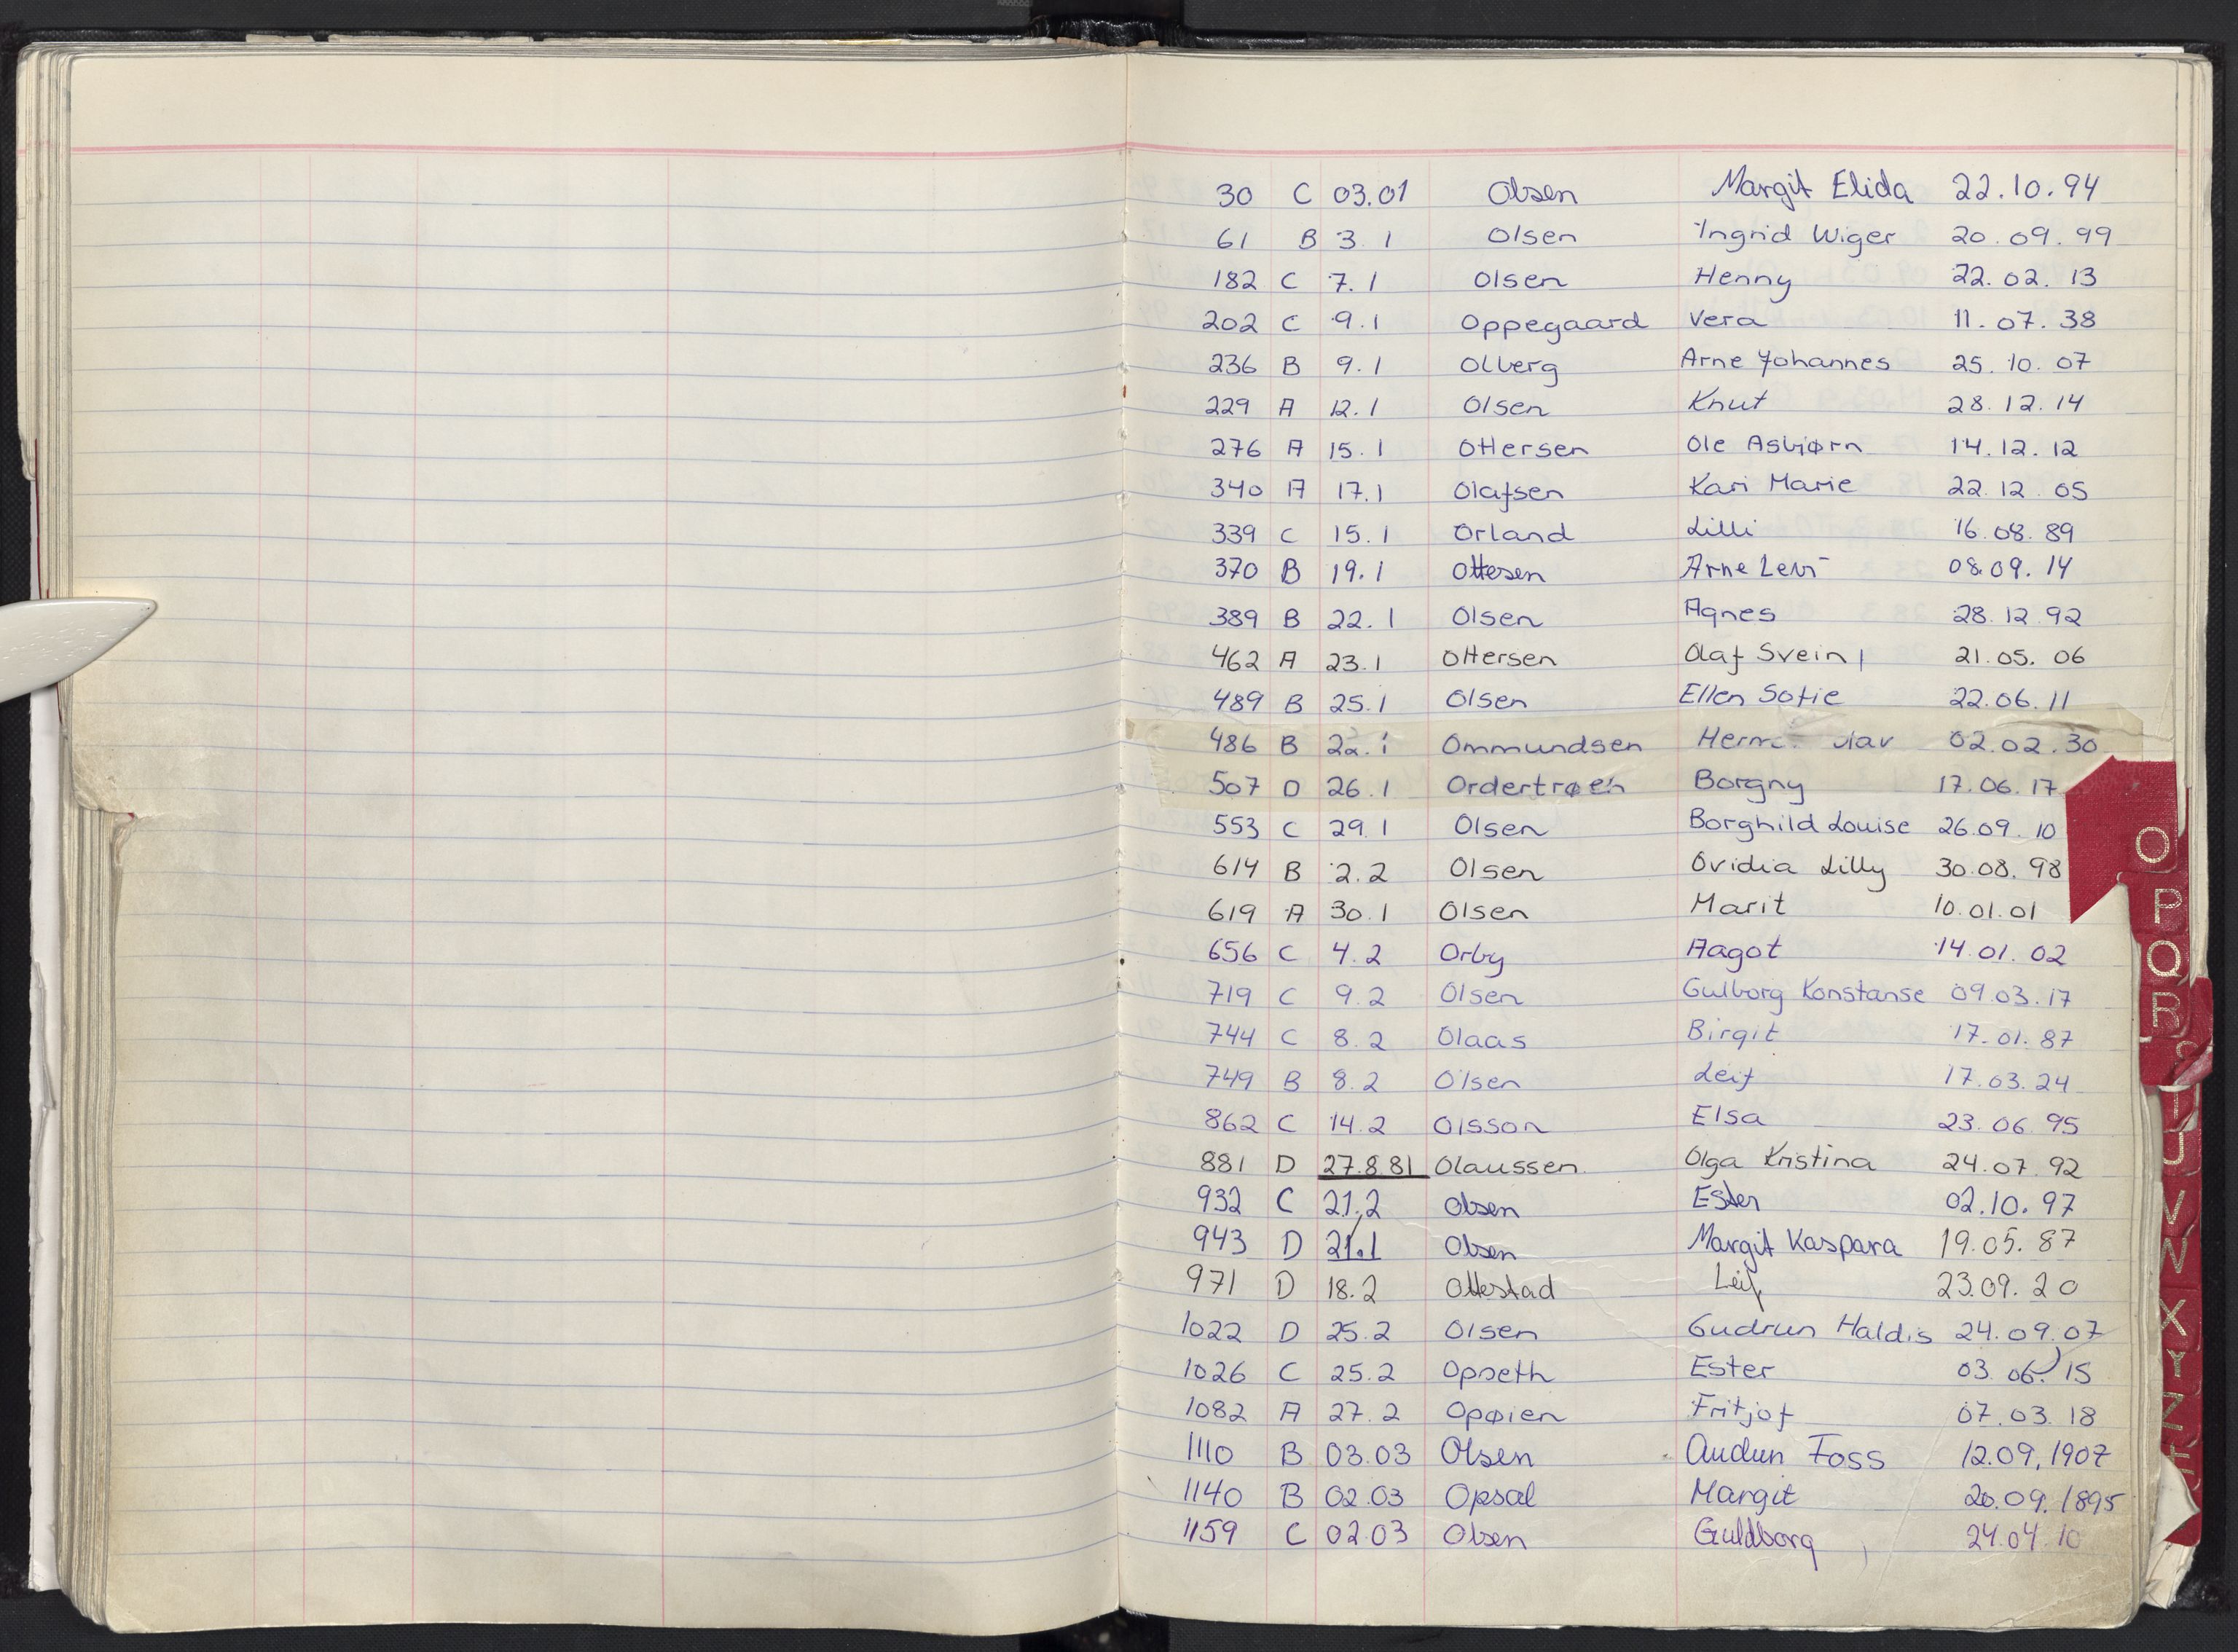 30 C 03.01 Olsen Margit Elida 22.10.94
61 B 3.1 Olsen Ingrid Wiger 20.09.99
182 C 7.1 Olsen Henny 22.02.13
202 C 9.1 Oppegaard Vera 11.07.38
236 B 9.1 Olberg Arne Johannes 25.10.07
229 A 12.1 Olsen Knut 28.12.14
276 A 15.1 Ottersen Ole Asbjørn 14.12.12
340 A 17.1 Olafsen Kari Marie 22.12.05
339 C 15.1 Orland Lilli 16.08.89
370 B 19.1 Ottesen Arne Levi 08.09.14
389 B 22.1 Olsen Agnes 28.12.92
462 A 23.1 Ottersen Olaf Svein 21.05.06
489 B 25.1 Olsen Ellen Sofie 22.06.11
486 B 22.1 Ommundsen 02.02.30
507 D 26.1 Ordertrøen Borgny 17.06.17
553 C 29.1 Olsen Borghild Louise 26.09.10
614 B 2.2 Olsen Ovidia Lilly 30.08.98
619 A 30.1 Olsen Marit 10.01.01
656 C 4.2 Orby Aagot 14.01.02
719 C 9.2 Olsen Gulborg Konstanse 09.03.17
744 C 8.2 Olaas Birgit 17.01.87
749 B 8.2 Olsen Leif 17.03.24
862 C 14.2 Olsson Elsa 23.06.95
881 D 27.8.81 Olaussen Olga Kristina 24.07.92
932 C 21.2 Olsen Ester 02.10.97
943 D 21.1 Olsen Margit Kaspara 19.05.87
971 D 18.2 Ottestad Leif 23.09.20
1022 D 25.2 Olsen Gudrun Haldis 24.09.07
1026 C 25.2 Opseth Ester 03.06.15
1082 A 27.2 Opøien Fritjof 07.03.18
1110 B 03.03 Olsen Audun Foss 12.09.1907
1140 B 02.03 Opsal Margit 20.09.1895
1159 C 02.03 Olsen Guldborg 24.04.10
O
P
Q
R
U
V
W
X
Y
Z